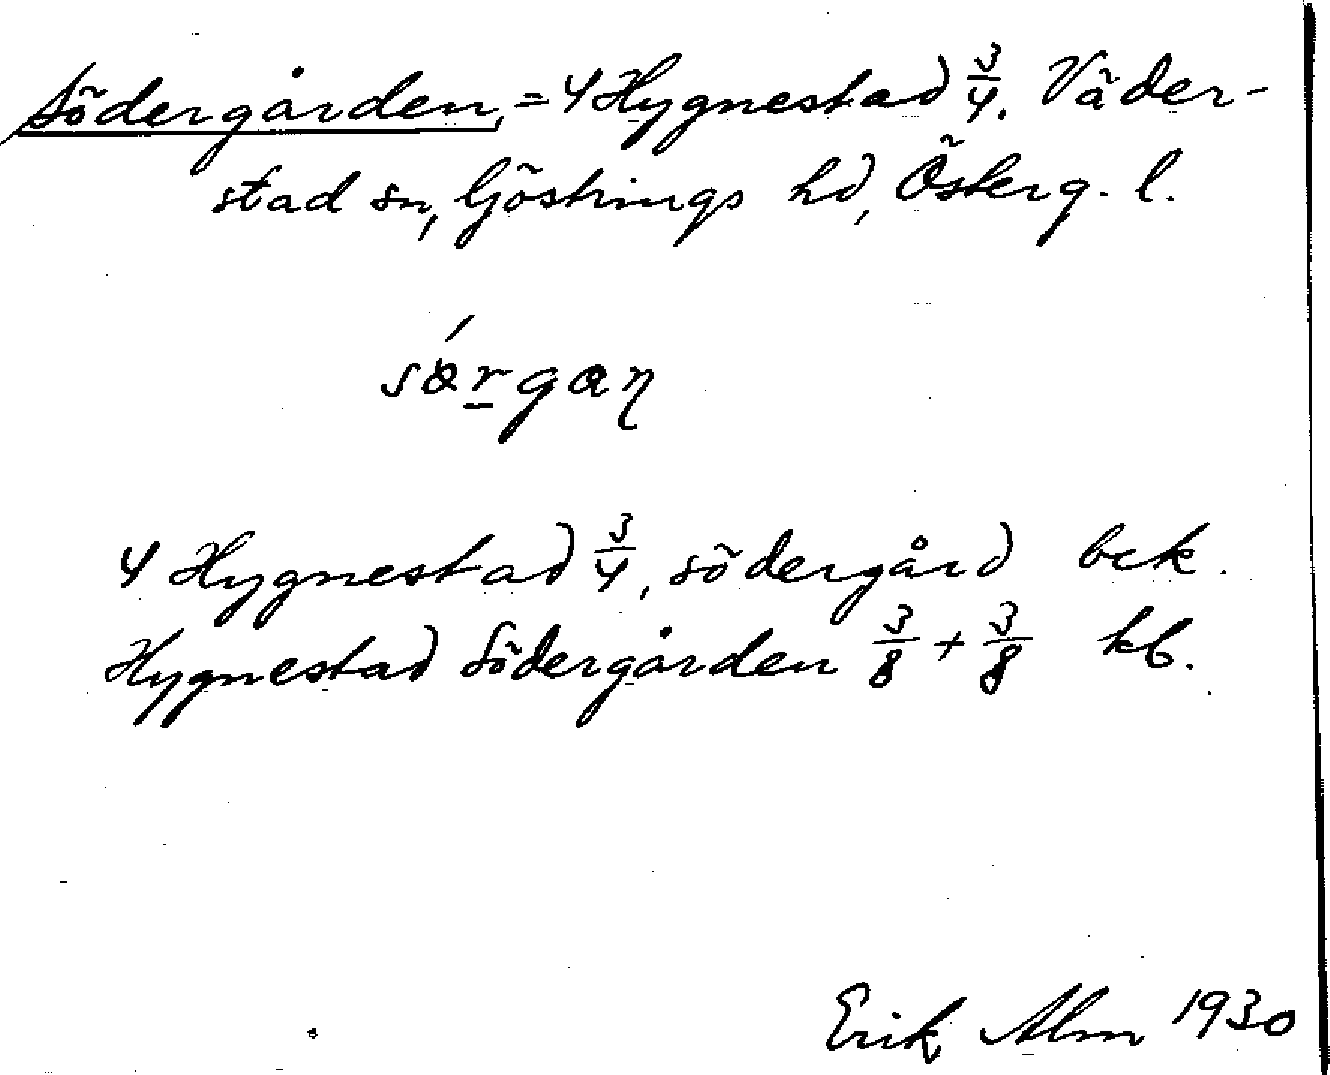 Södergården, = 4 Hygnestad 3/4. Väder-
stad sn, Göstrings hd, Österg. l.
sǿrgaɳ
4 Hygnestad 3/4, södergård bek.
Hygnestad Södergården 3/8 + 3/8 kb.
Erik Alm 1930